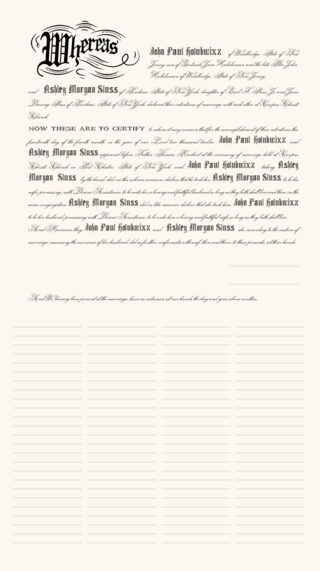 Whereas
John Paul Holubwixz of Woodbridge, State of New
Jersey, son of Gertrude Jane Holubwixz and the late Mr. John
Holubwixz of Woodbridge, State of New Jersey,
and Ashley Morgan Sinss of State of New York, daughter of
of State of New York, declared their intentions of marriage with each other at Corpus Christi
Church.
NOW THESE ARE TO CERTIFY to whom it may concern that for the accomplishment of their intentions this
fourteenth day of the fourth month in the year of our Lord two thousand twelve, John Paul Holubwixz and
Ashley Morgan Sinss appeared before Father at the ceremony of marriage held at Corpus
Christi Church in State of New York, and John Paul Holubwixz taking Ashley
Morgan Sinss by the hand, did on this solemn occasion, declare that he took her, Ashley Morgan Sinss to be his
wife, promising with Divine Assistance, to be unto her a loving and faithful husband so long as they both shall live; and then, in the
same congregation Ashley Morgan Sinss did in like manner declare that she took him, John Paul Holubwixz
to be her husband, promising with Divine Assistance, to be unto him a loving and faithful wife so long as they both shall live.
And Moreover they, John Paul Holubwixz and Ashley Morgan Sinss she according to the custom of
marriage, assuming the surname of her husband, did as further confirmation thereof then and there to these presents, set their hands.
And We having been present at the marriage, have as witnesses set our hands the day and year above written.